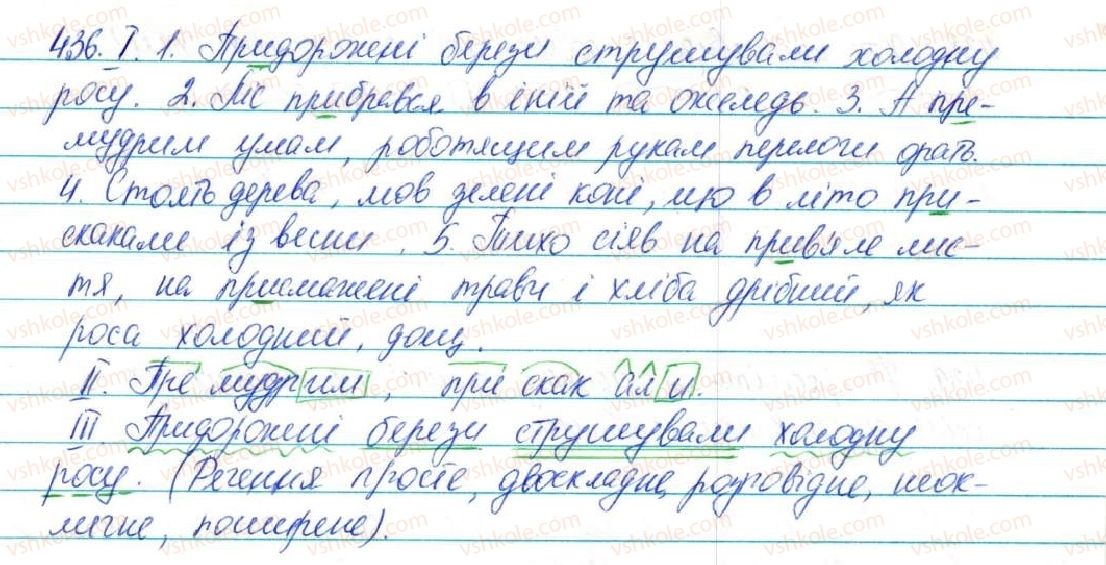 436. I. 1. Придорожені берези струшували холодну
росу. 2. Ліс прибрався в іній та ожеледь. 3. А пре-
мудрим умам, роботящим рукам перелоги орать.
4. Стоять дерева, мов зелені коні, що в літо при-
скакали із весни. 5. Тихо сіяв на прив'яле лис-
тя, на присмажені трави і хліба дрібний, як
роса холодний, дощ.
II. Пре мудр им, при скак ал и.
III. Придорожні берези струшували холодну
росу. (Речення просте, двоскладне, розповідне, неок-
личне, поширене).